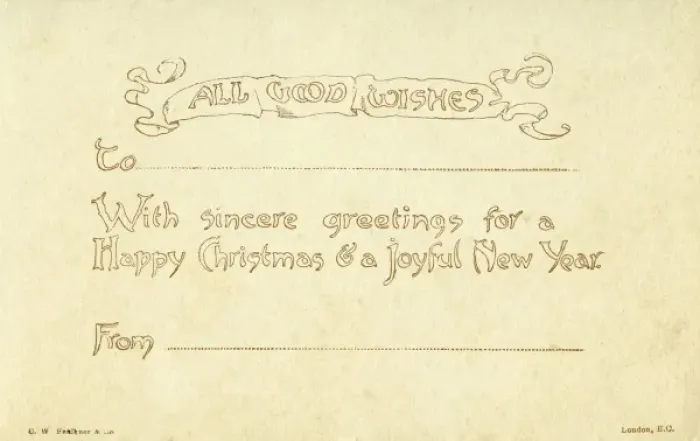 ALL GOOD WISHES
To
With sincere greetings for a
Happy Christmas & a joyful New Year.
From
London, E.C.